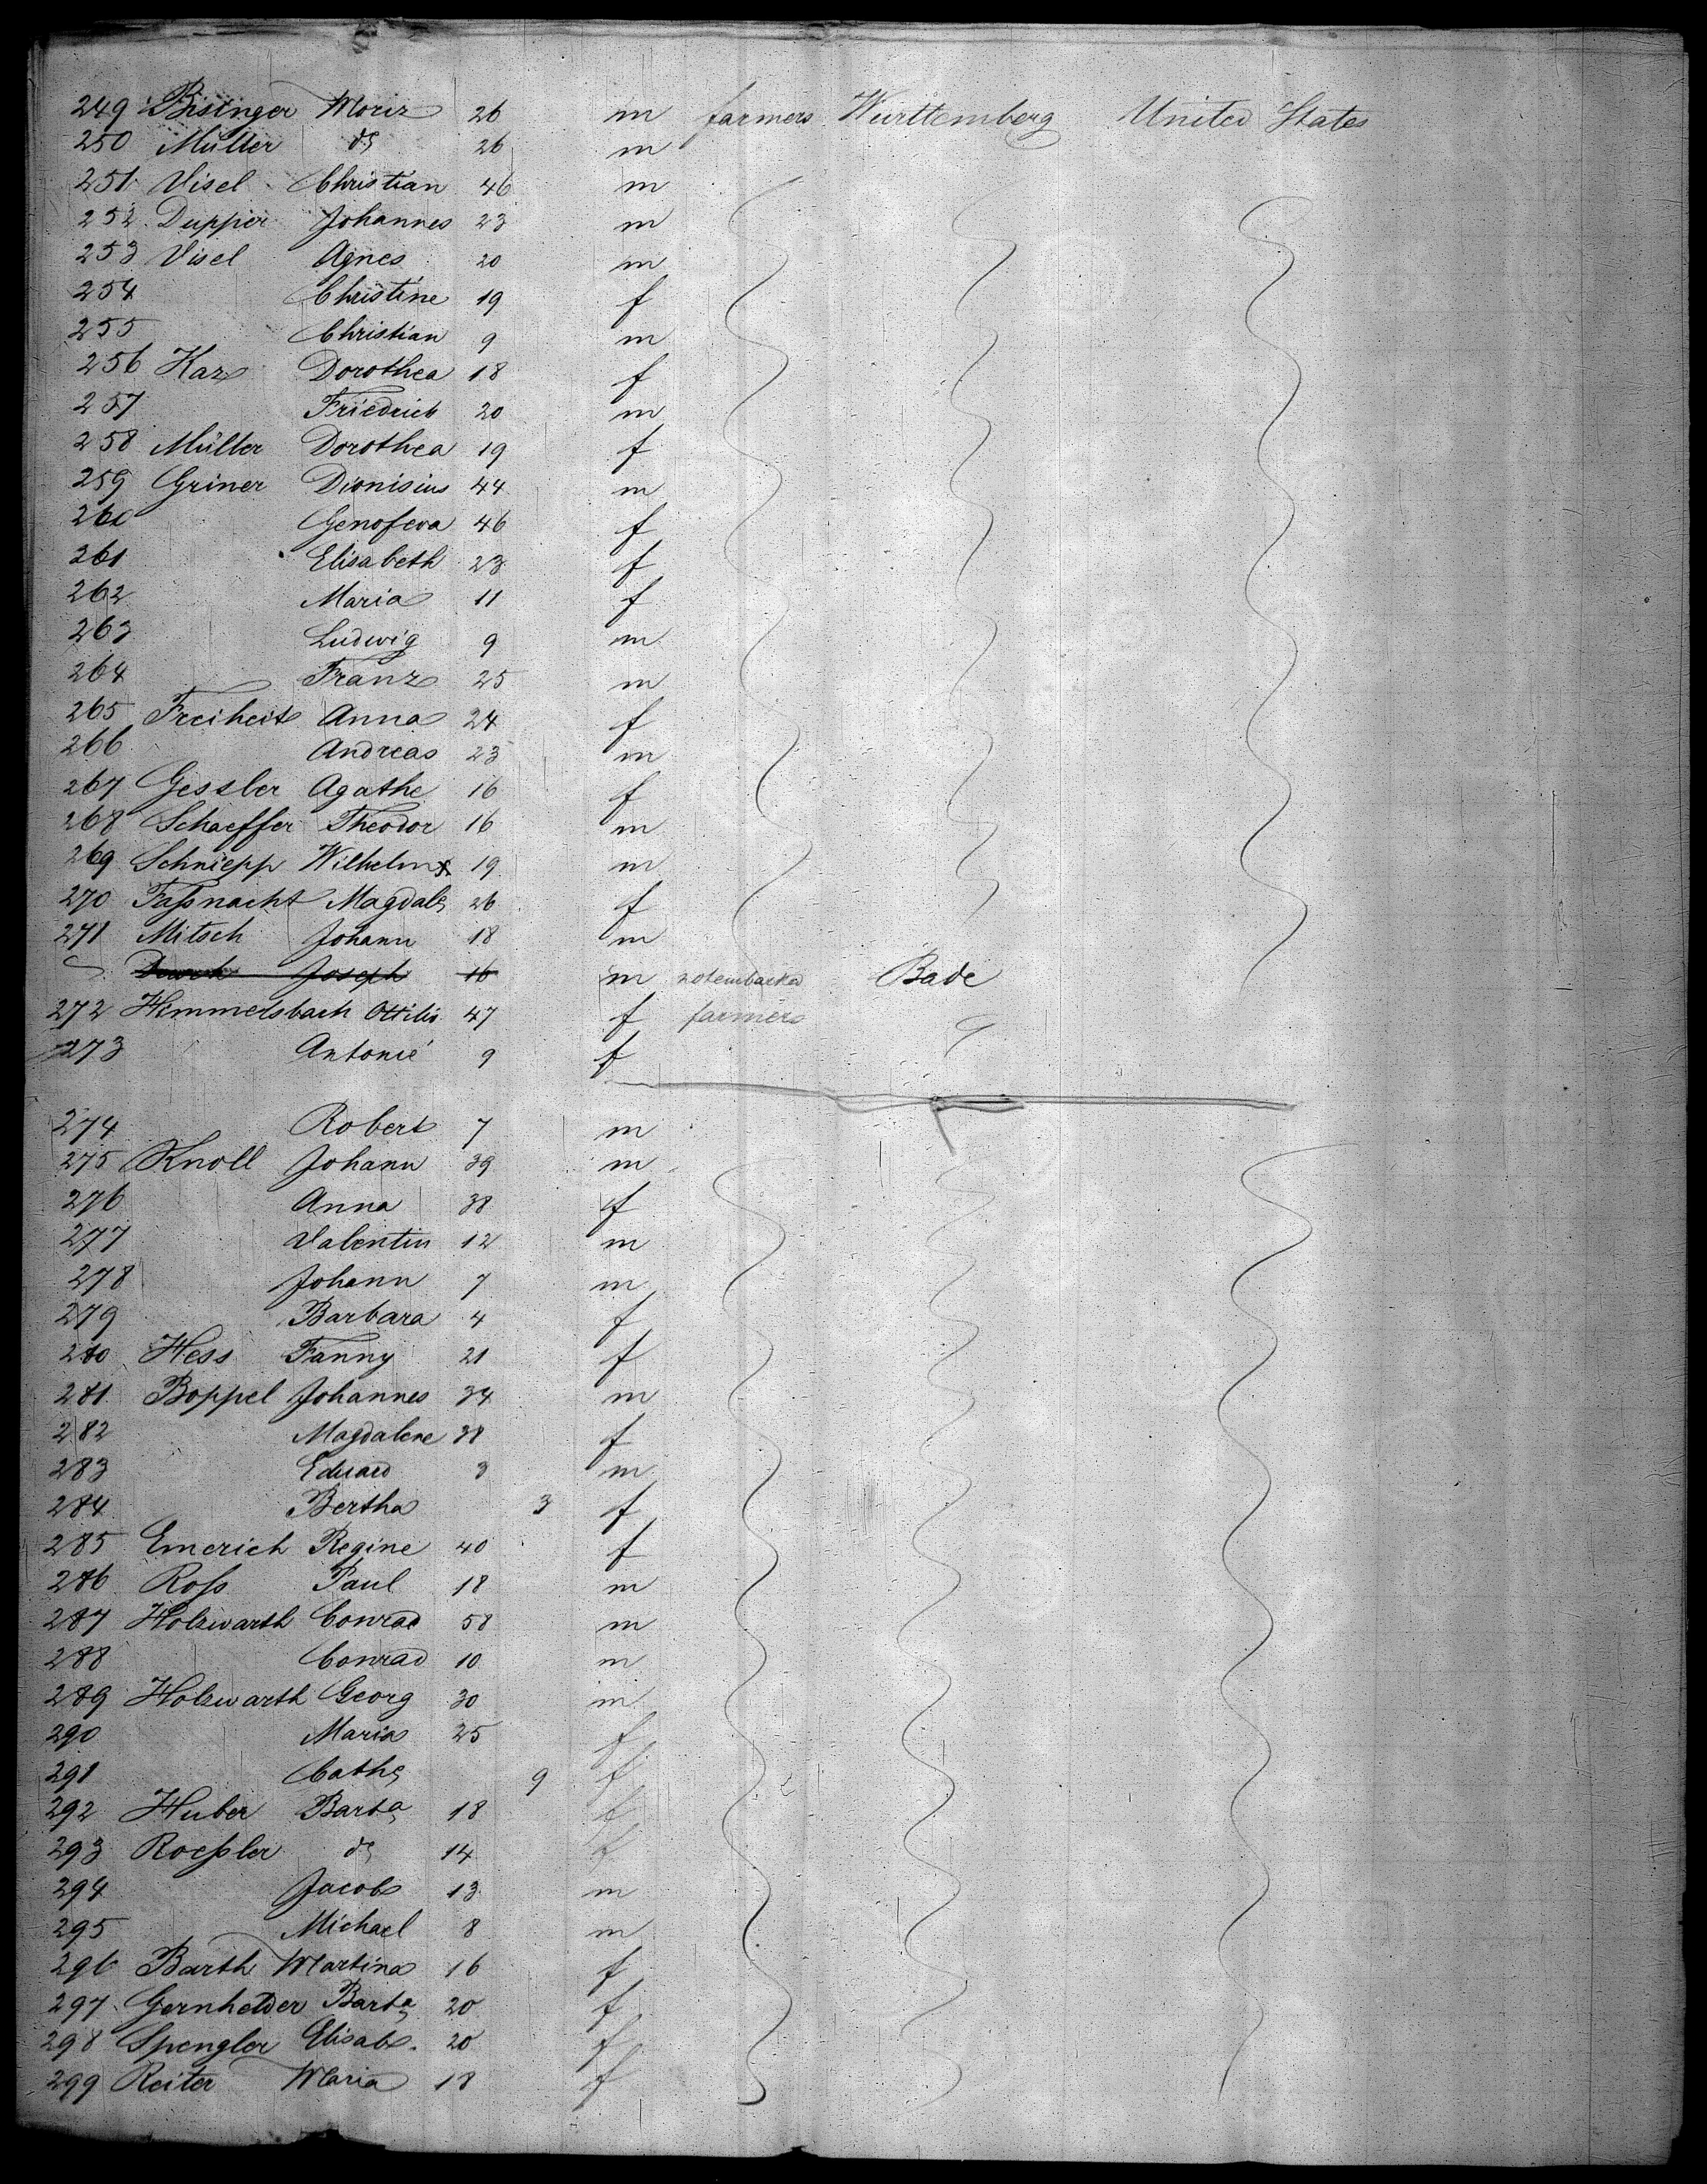 249 Bisinger Moriz 26 m farmers Württemberg United States
250 Müller do 26 m
251 Visel Christian 46 m
252 Dupper Johannes 23 m
253 Visel Agnes 20 m
254 Christine 19 f
255 Christian 9 m
256 Kaz Dorothea 18 f
257 Friedrich 20 m
258 Müller Dorothea 19 f
259 Griner Dionisius 44 m
260 Genofeva 46 f
261 Elisabeth 23 f
262 Maria 11 f
263 Ludwig 9 m
264 Franz 25 m
265 Freiheit Anna 24 f
266 Andreas 23 m
267 Gessler Agathe 16 f
268 Schaeffer Theodor 16 m
269 Schniepp Wilhelm 19 m
270 Faßnacht Magdale 26 f
271 Mitsch Johann 18 m
Joseph 16 m not embarked Bade
272 Himmelsbach Ottilie 47 f farmers
273 Antonie 9 f
274 Robert 7 m
275 Knoll Johann 39 m
276 Anna 38 f
277 Valentin 12 m
278 Johann 7 m
279 Barbara 4 f
280 Hess Fanny 21 f
281 Boppel Johannes 34 m
282 Magdalene 38 f
283 Eduard 3 m
284 Bertha 3 f
285 Emerich Regine 40 f
286 Roß Paul 18 m
287 Holzwarth Conrad 58 m
288 Conrad 10 m
289 Holzwarth Georg 30 m
290 Maria 25 f
291 Cathe 9 f
292 Huber Barba 18 f
293 Roeßler do 14 f
294 Jacob 13 m
295 Michael 8 m
296 Barth Martina 16 f
297 Gernhelder Barba 20 f
298 Spengler Elisab. 20 f
299 Reiter Maria 18 f